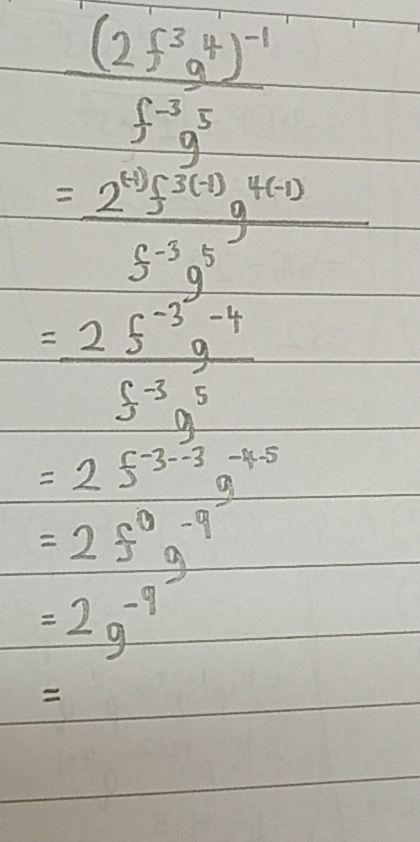 (2f³g⁴)⁻¹
f⁻³g⁵
= 2⁽⁻¹⁾f³⁽⁻¹⁾g⁴⁽⁻¹⁾
f⁻³g⁵
= 2f⁻³g⁻⁴
f⁻³g⁵
= 2f⁻³⁻⁻³g⁻⁴⁻⁵
= 2f⁰g⁻⁹
= 2g⁻⁹
=